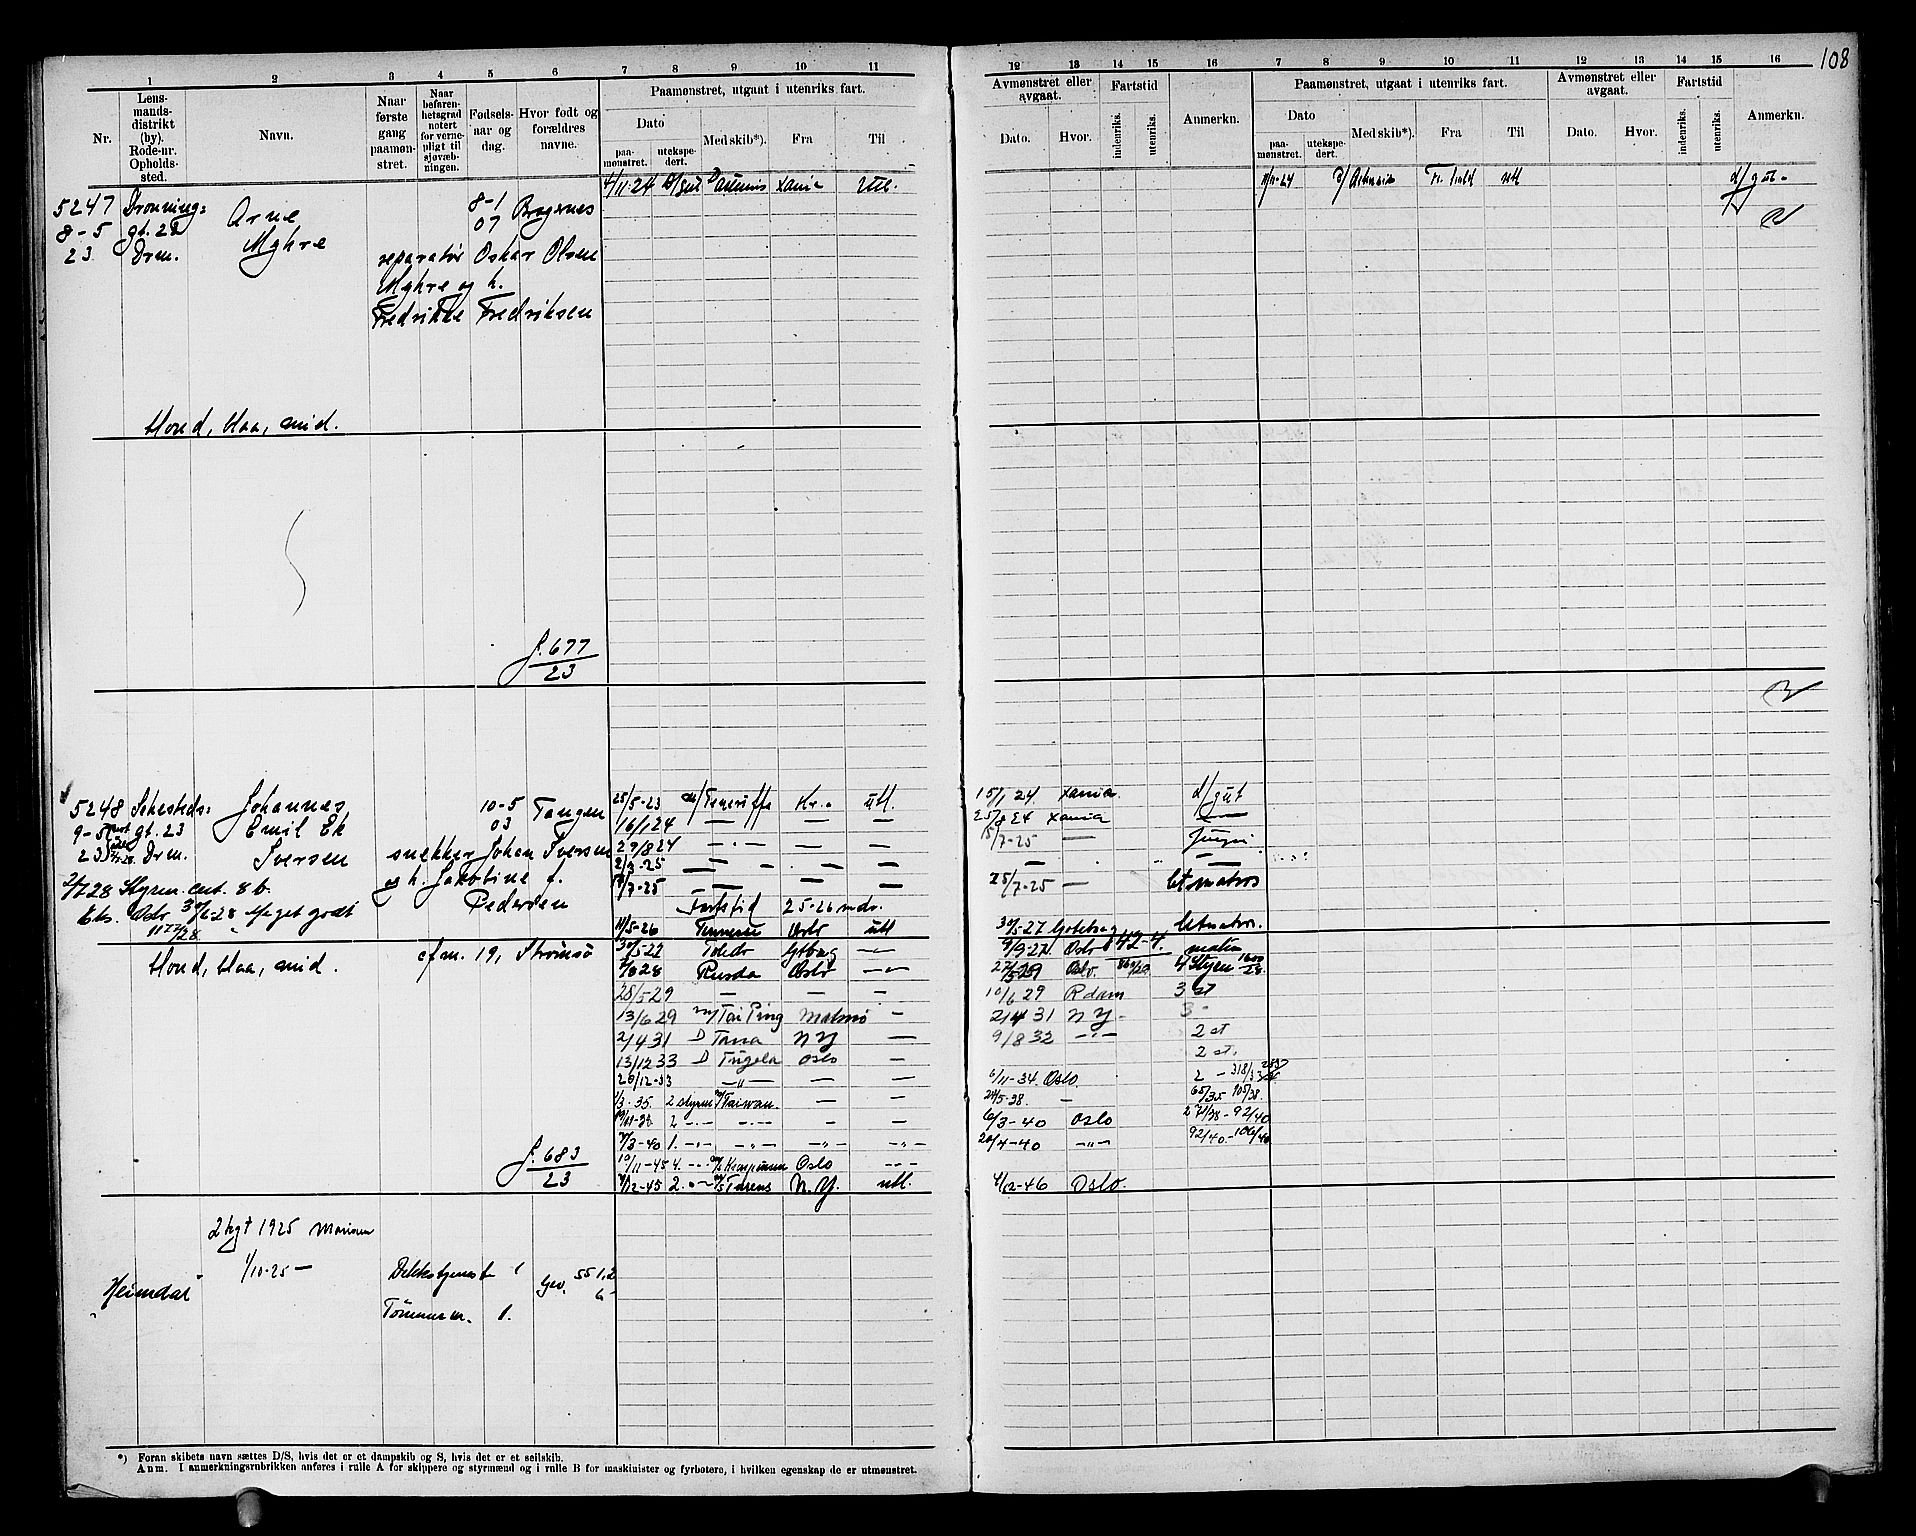 108
1 2 3 4 5 6 7 8 9 10 11
Nr.
Lens-
mands-
distrikt
(by).
Rode-nr.
Opholds-
sted.
Navn.
Naar
første
gang
paamøn-
stret.
Naar
befaren-
hetsgrad
notert
for verne-
pligt til
sjøvæb-
ningen.
Fødsels-
aar og
dag.
Hvor født og
forældres
navne.
Paamønstret, utgaat i utenriks fart.
Dato
paa-
mønstret.
utekspe-
dert.
Med skib*).
Fra
Til
12 13 14 15 16 7 8 9 10 11 12 13 14 15 16
Avmønstret eller
avgaat.
Dato.
Hvor.
Fartstid
indenriks.
utenriks.
Anmerkn.
Paamønstret, utgaat i utenriks fart.
Dato
paa-
mønstret.
utekspe-
dert.
Med skib*).
Fra
Til
Avmønstret eller
avgaat.
Dato.
Hvor.
Fartstid
indenriks.
utenriks.
Anmerkn.
5247 Dronning:
8-5 gt. 22
23. Drm.
Arne
Myhre
8-1 Bragernes
07
reparatør Oskar Olsen
Myhre og h.
Fredrikke Fredriksen
4/11-24 Xania Utl.
11/11-24 utl
d/gut
blond, blaa, mid.
J. 677
23
5248 Sehesteds:
9-5 gt. 23
23 Drm.
Johannes
Emil Ek
Iversen
10-5 Tangen
03
snekker Johan Iversen
og h. Jakobine f.
Pedersen
2/7 28 Styrm. ent. 8b.
Oslo 30/6-28 Meget godt
blond, blaa, mid.
efm. 19, Strømsø
25/5-23 m/ Teneriffa Kr.a utl.
16/1 24 — — —
29/8 24 — — —
2/3-25 — — —
/7-25 — — —
Fartstid 25-26 mdr.
11/5-26 Tennessee Oslo utl
30/5-27 Toledo Gtborg —
/8 28 Rusda Oslo —
28/5 29 — — —
13/6 29 m/ Tai Ping Malmø —
2/4 31 D Tana N Y —
13/12 33 D Tugela Oslo —
20/12-33 —"— — —
1/3-35 2 styrm m/ Taiwan. — —
2 —
7/3-40 1. —"— —"— —"— —"—
10/11-45 4. Oslo
/12-45 2. m/s N.Y. utl.
15/1 24. Xania. d/gut
25/8 24 Xania —
/7-25 — Jungm
— — —
25/7-25 — letmatros
30/5-27 Gøteborg letmatros.
9/9-27. Oslo 42-4. matros
Oslo. 4 Styrm
10/6 29 R dam 3 st
2/4 31 N Y - 3 -
9/8 32 —"— 2 st
2 st.
6/11-34. Oslo. 2 - 318/33
/5-38. — 65/35 105/38.
6/3-40 Oslo 271/38 - 92/40
20/4-40 —"— 92/40 - 106/40
4/12-46 Oslo.
J. 683
23
2 hgt 1925 Marinen
1/10-25 —
Heimdal
Dekkstjeneste 1
Tømmerm. 1.
Gev. 55 1,2
6
*) Foran skibets navn sættes D/S, hvis det er et dampskib og S, hvis det er et seilskib.
Anm. I anmerkningsrubrikken anføres i rulle A for skippere og styrmænd og i rulle B for maskinister og fyrbøtere, i hvilken egenskap de er utmønstret.